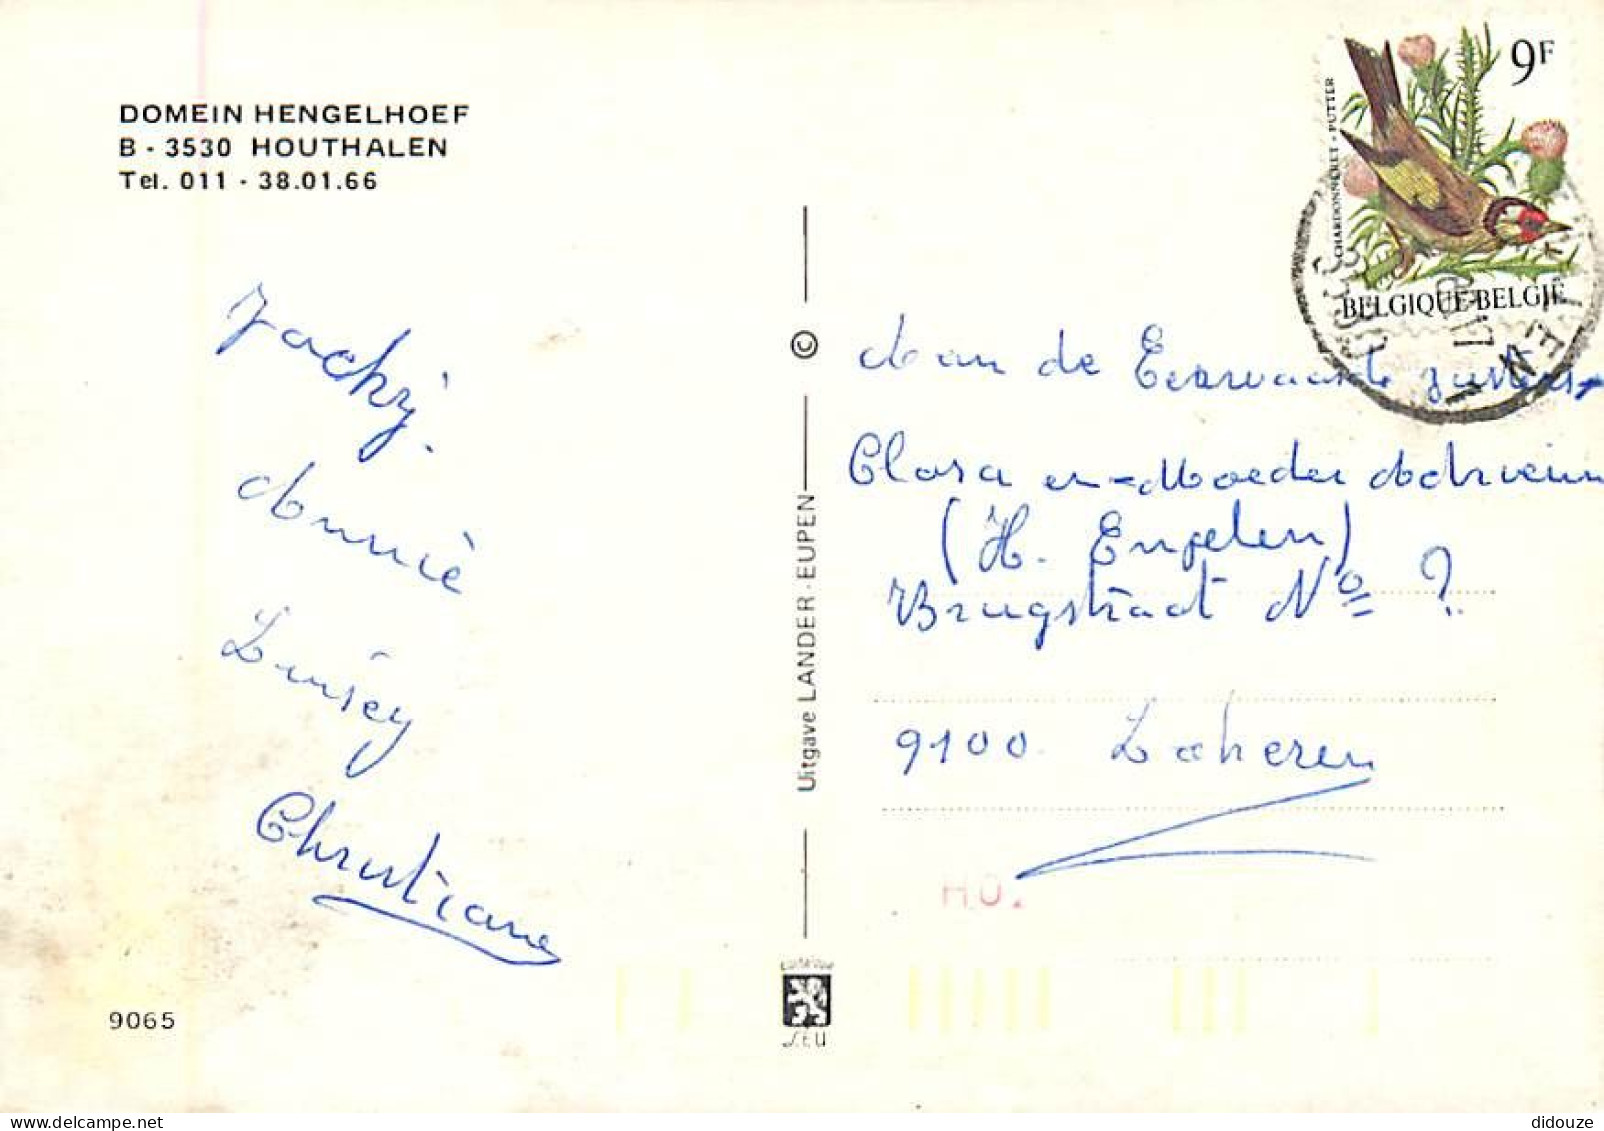 DOMEIN HENGELHOEF
B - 3530 HOUTHALEN
Tel. 011 - 38.01.66
Jacky.
Annie
Christiane
9065
Uitgave LANDER - EUPEN
©
9F
CHARDONNERET - PUTTER
BELGIQUE-BELGIË
Aan de Eerwaarde zusters
Clara en Moeder
(H. Engelen)
Brugstraat Nº ?
9100 Lokeren
HO.
didouze